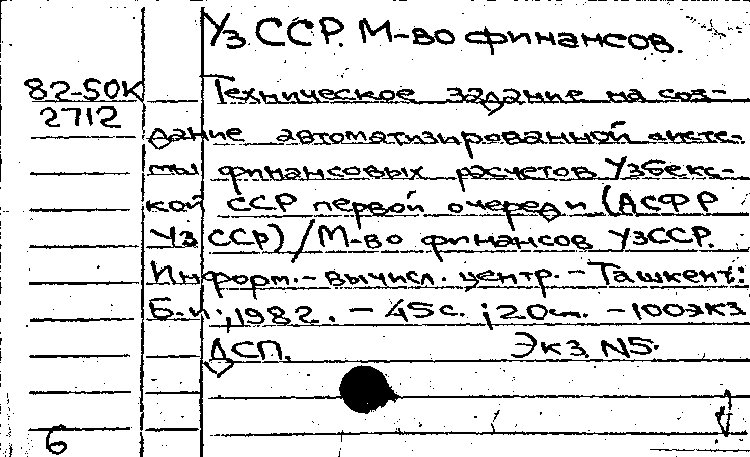 УзССР. М-во финансов.
82-50К
2712
Техническое задание на соз-
дание автоматизированной систе-
мы финансовых расчетов Узбекс-
кой ССР первой очереди (АСФР
УзССР) / М-во финансов УзССР.
Информ.-вычисл. центр. - Ташкент:
Б.и., 1982. - 45с.; 20см. - 100экз
ДСП. Экз N5.
6